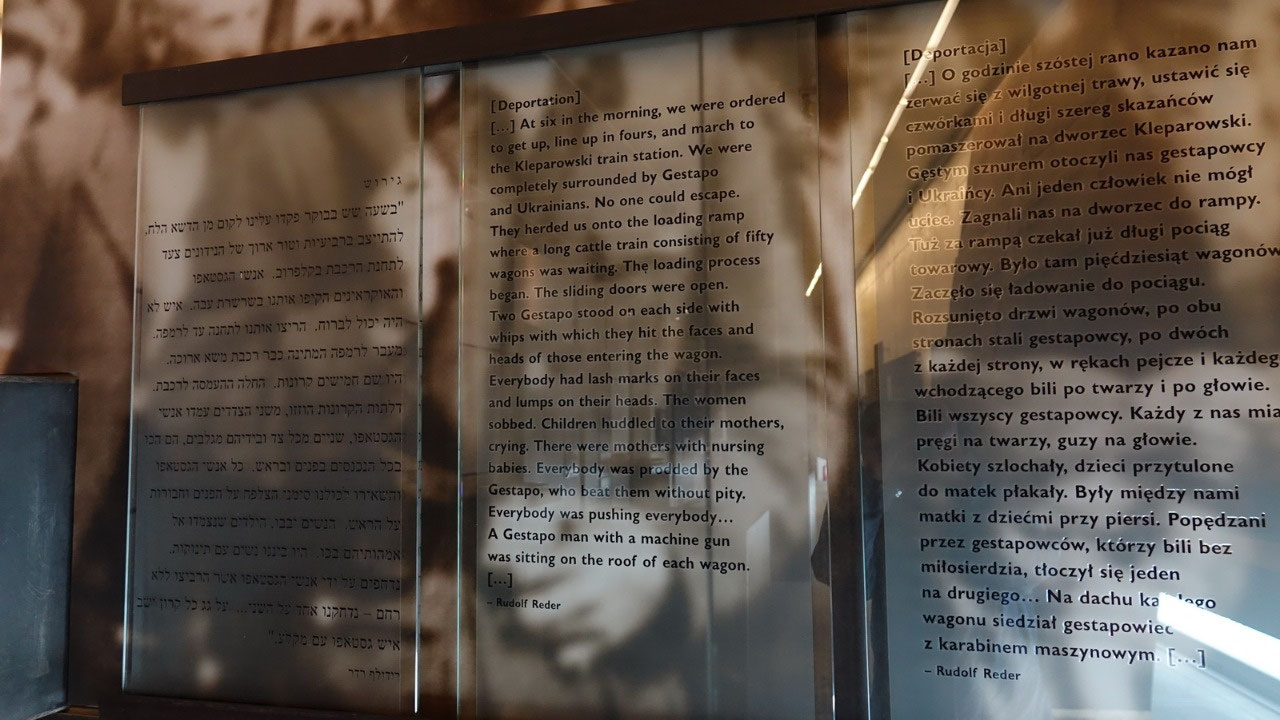 גירוש
"בשעה שש בבוקר פקדו עלינו לקום מן הדשא הלח,
להתייצב ברביעיות וטור ארוך של הנידונים צעד
לתחנת הרכבת בקלפרוב. אנשי הגסטאפו
והאוקראינים הקיפו אותנו בשרשרת עבה. איש לא
היה יכול לברוח. הריצו אותנו לתחנה עד לרמפה.
מעבר לרמפה המתינה כבר רכבת משא ארוכה.
היו שם חמישים קרונות. החלה ההעמסה לרכבת.
דלתות הקרונות הוזזו, משני הצדדים עמדו אנשי
הגסטאפו, שניים מכל צד ובידיהם מגלבים, הם הכו
בכל הנכנסים בפנים ובראש. כל אנשי הגסטאפו
והשאירו לכולנו סימני הצלפה על הפנים וחבורות
על הראש. הנשים יבבו, הילדים שנצמדו אל
אמהותיהם בכו. היו ביננו נשים עם תינוקות.
נדחפים על ידי אנשי הגסטאפו אשר הרביצו ללא
רחם – נדחקנו אחד על השני... על גג כל קרון ישב
איש גסטאפו עם מקלע."
רודולף רדר
[Deportation]
[...] At six in the morning, we were ordered
to get up, line up in fours, and march to
the Kleparowski train station. We were
completely surrounded by Gestapo
and Ukrainians. No one could escape.
They herded us onto the loading ramp
where a long cattle train consisting of fifty
wagons was waiting. The loading process
began. The sliding doors were open.
Two Gestapo stood on each side with
whips with which they hit the faces and
heads of those entering the wagon.
Everybody had lash marks on their faces
and lumps on their heads. The women
sobbed. Children huddled to their mothers,
crying. There were mothers with nursing
babies. Everybody was prodded by the
Gestapo, who beat them without pity.
Everybody was pushing everybody...
A Gestapo man with a machine gun
was sitting on the roof of each wagon.
[...]
– Rudolf Reder
[Deportacja]
[...] O godzinie szóstej rano kazano nam
zerwać się z wilgotnej trawy, ustawić się
czwórkami i długi szereg skazańców
pomaszerował na dworzec Kleparowski.
Gęstym sznurem otoczyli nas gestapowcy
i Ukraińcy. Ani jeden człowiek nie mógł
uciec. Zagnali nas na dworzec do rampy.
Tuż za rampą czekał już długi pociąg
towarowy. Było tam pięćdziesiąt wagonów
Zaczęło się ładowanie do pociągu.
Rozsunięto drzwi wagonów, po obu
stronach stali gestapowcy, po dwóch
z każdej strony, w rękach pejcze i każdeg
wchodzącego bili po twarzy i po głowie.
Bili wszyscy gestapowcy. Każdy z nas mia
pręgi na twarzy, guzy na głowie.
Kobiety szlochały, dzieci przytulone
do matek płakały. Były między nami
matki z dziećmi przy piersi. Popędzani
przez gestapowców, którzy bili bez
miłosierdzia, tłoczył się jeden
na drugiego... Na dachu każdego
wagonu siedział gestapowiec
z karabinem maszynowym. [...]
– Rudolf Reder